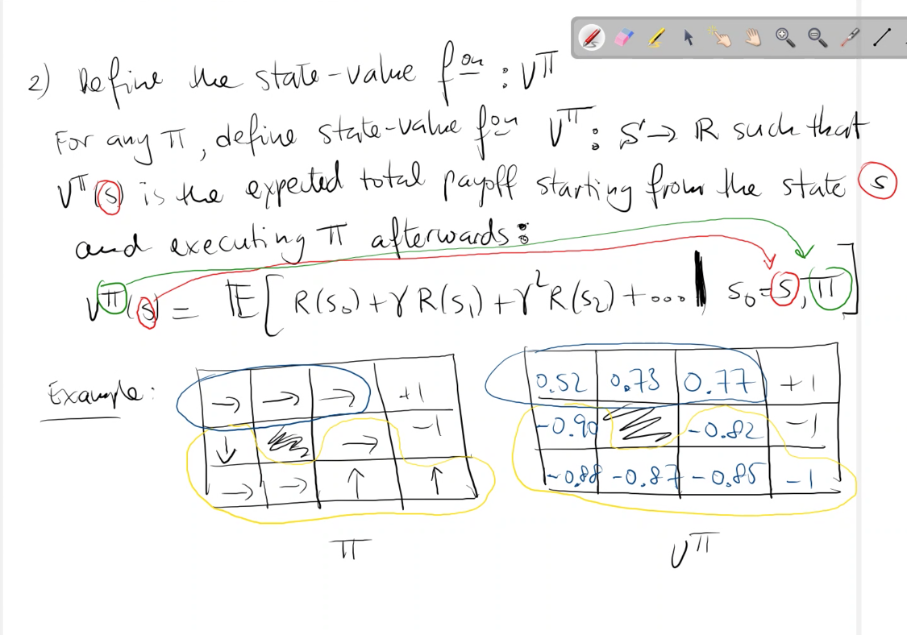 2) Define the state-value fon : V^π
For any π, define state-value fon V^π : S → R such that
V^π(s) is the expected total payoff starting from the state s
and executing π afterwards:
V^π(s) = E[ R(s₀) + γ R(s₁) + γ² R(s₂) + ... | s₀ = s, π ]
Example:
→ → → +1
↓ → -1
→ → ↑ ↑
π
0.52 0.73 0.77 +1
-0.90 -0.82 -1
-0.88 -0.87 -0.85 -1
V^π